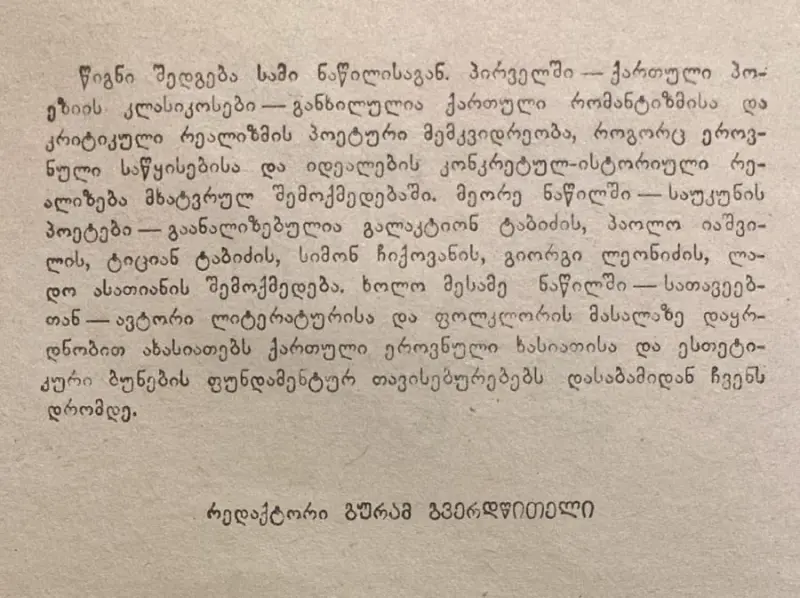 წიგნი შედგება სამი ნაწილისაგან. პირველში — ქართული პო-
ეზიის კლასიკოსები — განხილულია ქართული რომანტიზმისა და
კრიტიკული რეალიზმის პოეტური მემკვიდრეობა, როგორც ეროვ-
ნული საწყისებისა და იდეალების კონკრეტულ-ისტორიული რე-
ალიზება მხატვრულ შემოქმედებაში. მეორე ნაწილში — საუკუნის
პოეტები — გაანალიზებულია გალაკტიონ ტაბიძის, პაოლო იაშვი-
ლის, ტიციან ტაბიძის, სიმონ ჩიქოვანის, გიორგი ლეონიძის, ლა-
დო ასათიანის შემოქმედება. ხოლო მესამე ნაწილში — სათავეებ-
თან — ავტორი ლიტერატურისა და ფოლკლორის მასალაზე დაყრ-
დნობით ახასიათებს ქართული ეროვნული ხასიათისა და ესთეტი-
კური ბუნების ფუნდამენტურ თავისებურებებს დასაბამიდან ჩვენს
დრომდე.
რედაქტორი გურამ გვერდწითელი